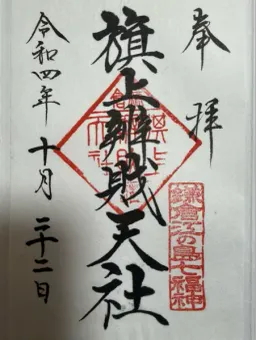 奉拝
鎌倉江の島七福神
旗上辨財天社
令和四年十月二十二日